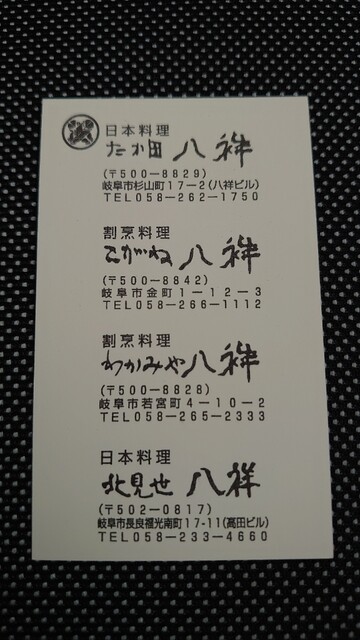 日本料理
たか田 八祥
(〒500-8829)
岐阜市杉山町17-2(八祥ビル)
TEL058-262-1750
割烹料理
こがね 八祥
(〒500-8842)
岐阜市金町1-12-3
TEL058-266-1112
割烹料理
わかみや 八祥
(〒500-8828)
岐阜市若宮町4-10-2
TEL058-265-2333
日本料理
北見世 八祥
(〒502-0817)
岐阜市長良福光南町17-11(高田ビル)
TEL058-233-4660